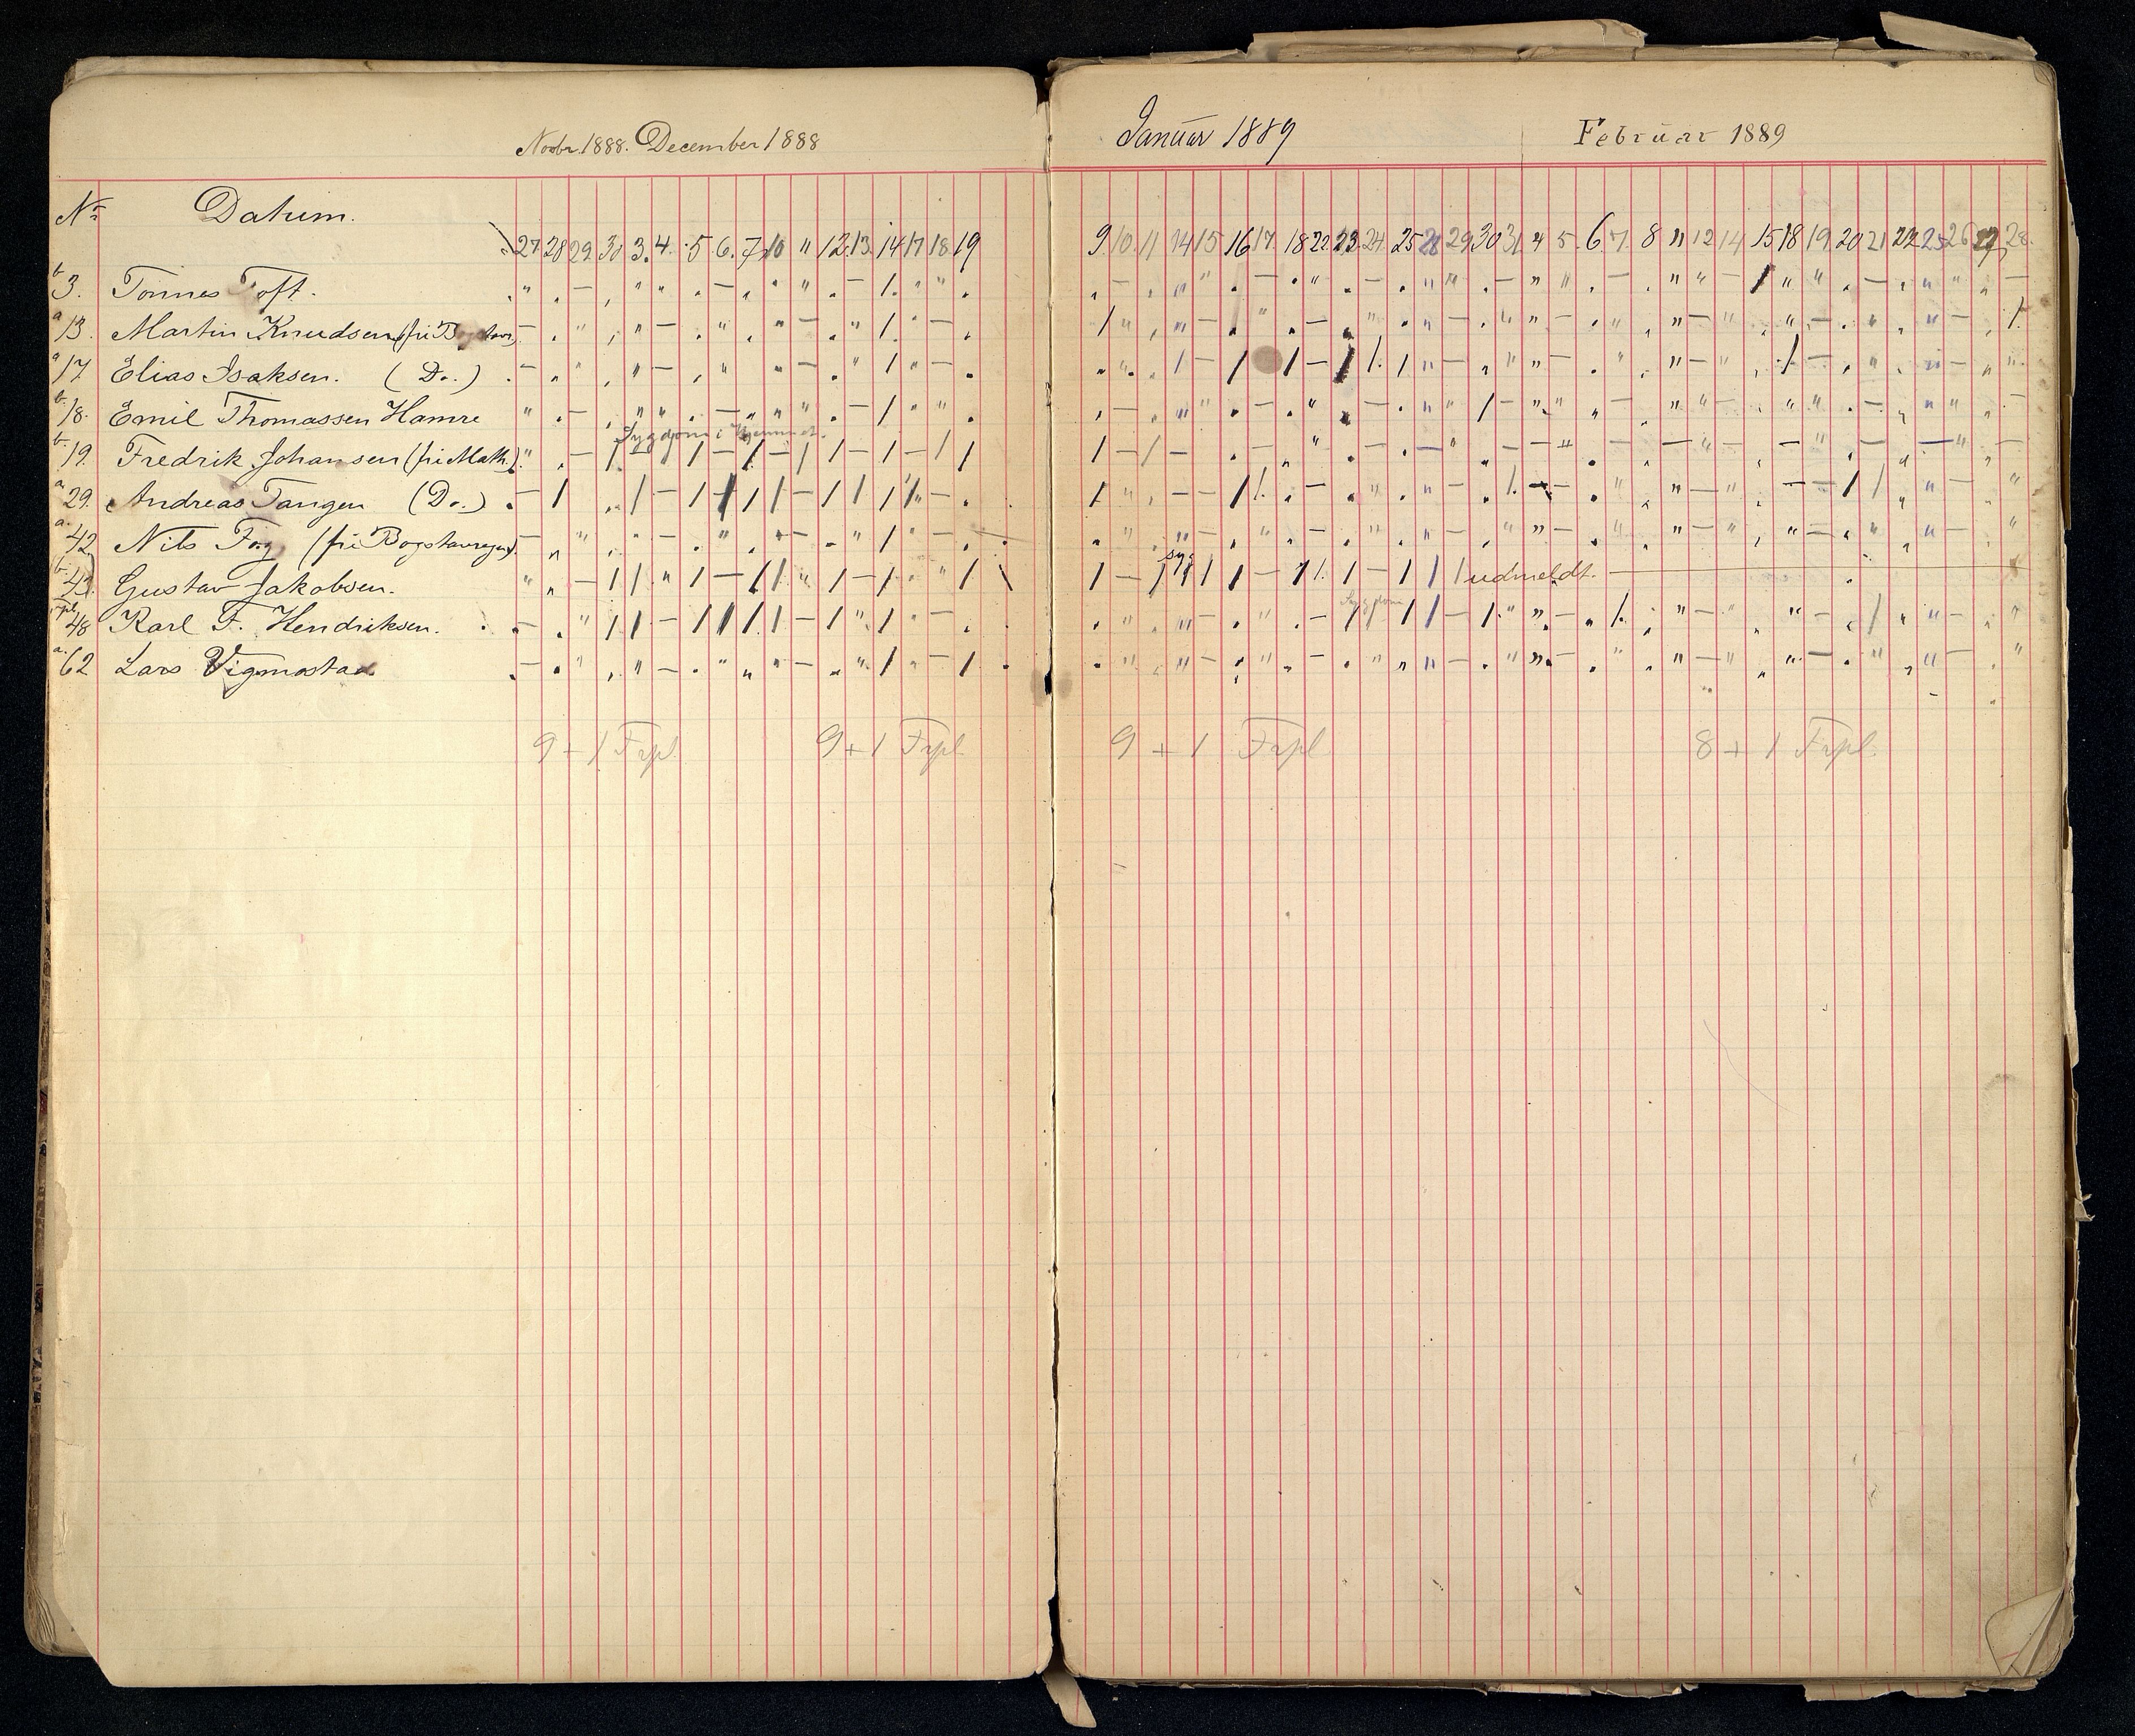 Novbr. 1888. December 1888
Januar 1889
Februar 1889
No Datum.
27 28 29 30 3. 4. 5 6. 7 10 11 12 13 14 17 18 19
9 10. 11 14 15 16 17. 18 22 23 24 25 28 29 30 31 4 5. 6. 7. 8 11 12 14 15 18 19 20 21 22 25 26 27 28.
b 3. Tønnes Toft.
a 13. Martin Knudsen
a 17 Elias Isaksen. (Do.)
b 18. Emil Thomassen Hamre
Sygdom i Hjemmet.
b 19. Fredrik Johansen (fri Math.)
a 29. Andreas Tangen (Do.)
a 42 Nils (fri Bogstavregn.)
syg
b 43. Gustav Jakobsen. udmeldt.
Sygdom
frpl. 48 Karl F. Hendriksen.
a 62 Lars Vigmostad
9 + 1 Frpl. 9 + 1 Frpl. 9 + 1 Frpl 8 + 1 Frpl.